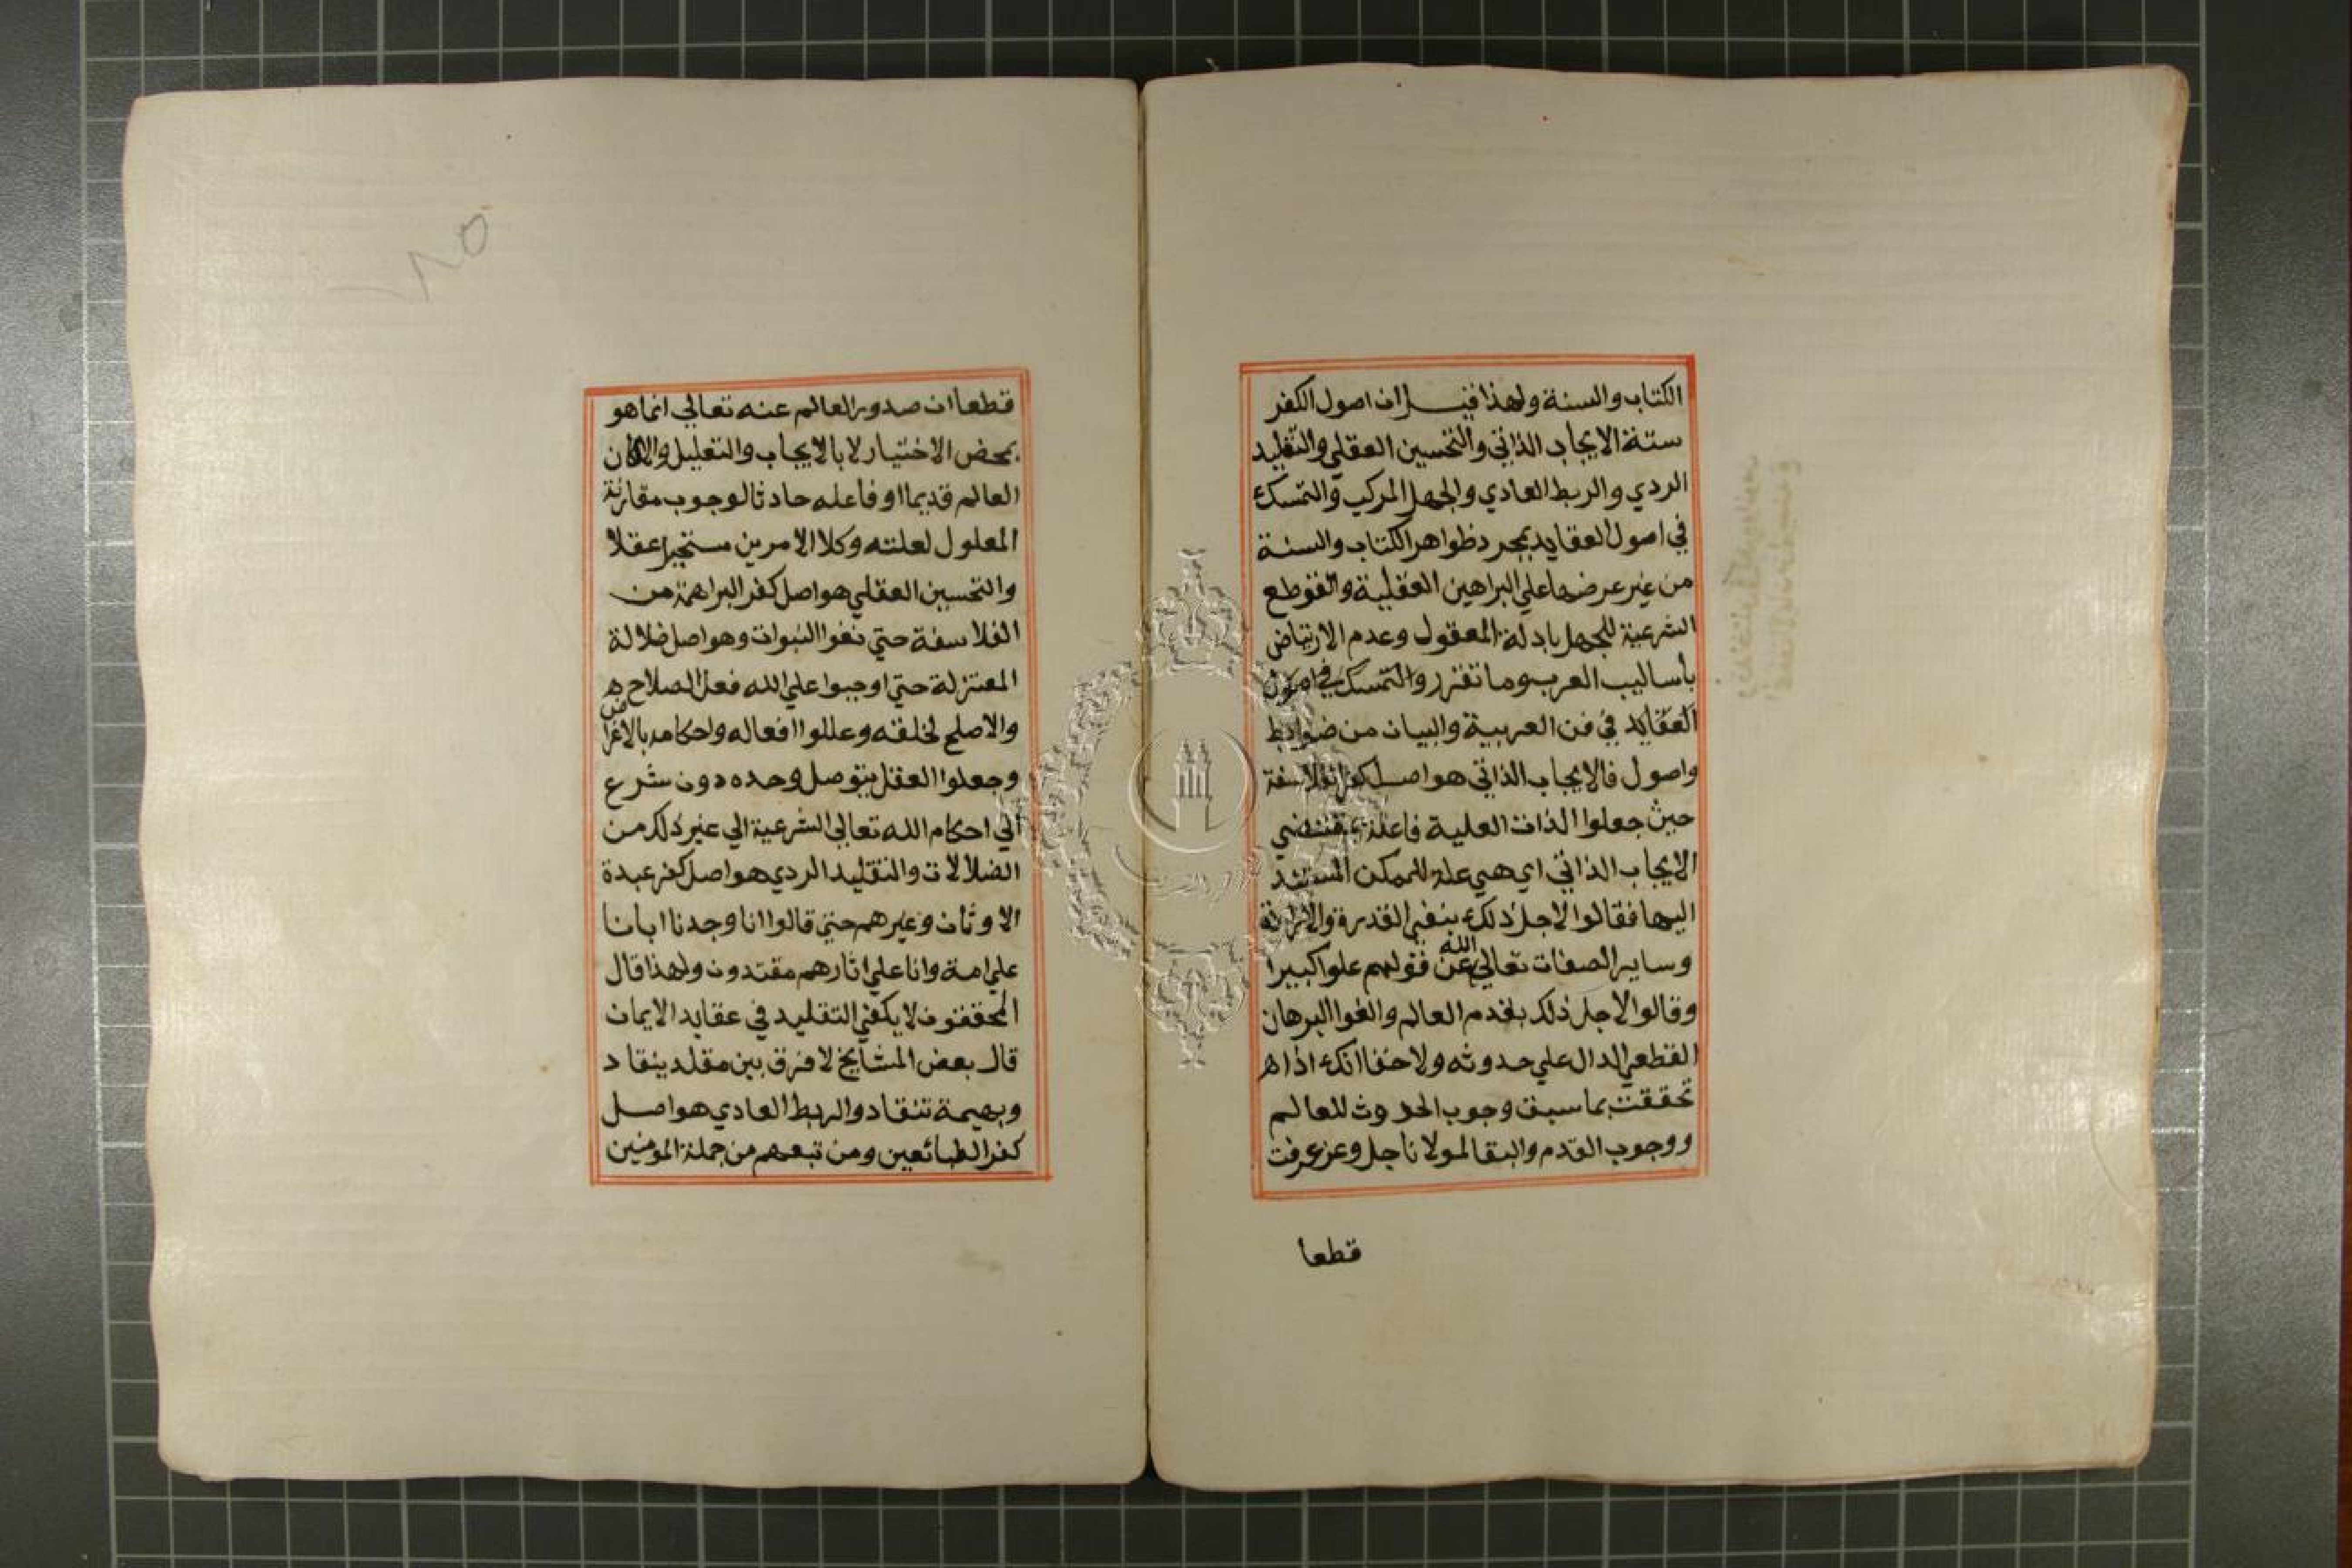 الكتاب والسنة ولهذا قيل ان اصول الكفر
ستة الايجاب الذاتي والتحسين العقلي والتقليد
الردي والربط العادي والجهل المركب والتمسك
في اصول العقايد بمجرد ظواهر الكتاب والسنة
من غير عرضها علي البراهين العقلية والقوطع
الشرعية للجهل بادلة المعقول وعدم الارتياض
بأساليب العرب وما تقرر والتمسك في اصول
العقايد في فن العربية والبيان من ضوابط
واصول فالايجاب الذاتي هو اصل كفر الفلاسفة
حيث جعلوا الذات العلية فاعلة بمقتضي
الايجاب الذاتي اي هي علة للممكن المستند
اليها فقالوا لاجل ذلك بنفي القدرة والارادة
وساير الصفات تعالي الله عن قولهم علوا كبيرا
وقالوا لاجل ذلك بقدم العالم والغوا البرهان
القطعي الدال علي حدوثه ولا خفا انك اذا ه
تحققت بما سبق وجوب الحدوث للعالم
ووجوب القدم والبقا لمولانا جل وعز عرفت
قطعا
١٨٥
قطعا ان صدور العالم عنه تعالي انما هو
بمحض الاختيار لا بالايجاب والتعليل والا كان
العالم قديما او فاعله حادثا لوجوب مقارنة
المعلول لعلته وكلا الامرين مستحيل عقلا
والتحسين العقلي هو اصل كفر البراهمة من
الفلاسفة حتي نفوا النبوات وهو اصل ضلالة
المعتزلة حتي اوجبوا علي الله فعل الصلاح ه
والاصلح لخلقه وعللوا افعاله واحكامه بالاغراض
وجعلوا العقل يتوصل وحده دون شرع
الي احكام الله تعالي الشرعية الي غير ذلك من
الضلالات والتقليد الردي هو اصل كفر عبدة
الاوثان وغيرهم حتي قالوا انا وجدنا ابانا
علي امة وانا علي اثارهم مقتدون ولهذا قال
المحققون لا يكفي التقليد في عقايد الايمان
قال بعض المشايخ لا فرق بين مقلد ينقاد
وبهيمة تنقاد والربط العادي هو اصل
كفر الطبائعين ومن تبعهم من جملة المومنين